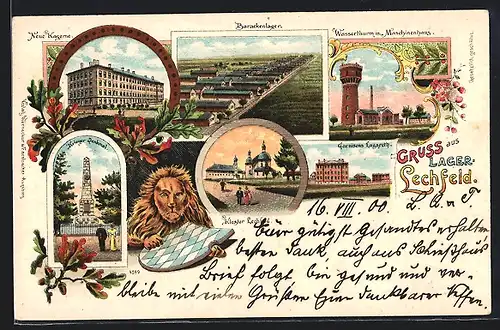 Neue Kaserne.
Barackenlager.
Wasserthurm u. Maschinenhaus.
Krieger-Denkmal.
Kloster Lechfeld.
Garnisons Lazareth.
GRUSS AUS
LAGER-
Lechfeld.
1012
16. VIII. 00. L. O. u. T.
Euer gütigst Gesandtes erhalten
besten Dank, auch aus Schießhaus
Brief folgt bin gesund und ver-
bleibe mit vielen Grüßen Euer dankbarer Neffe.